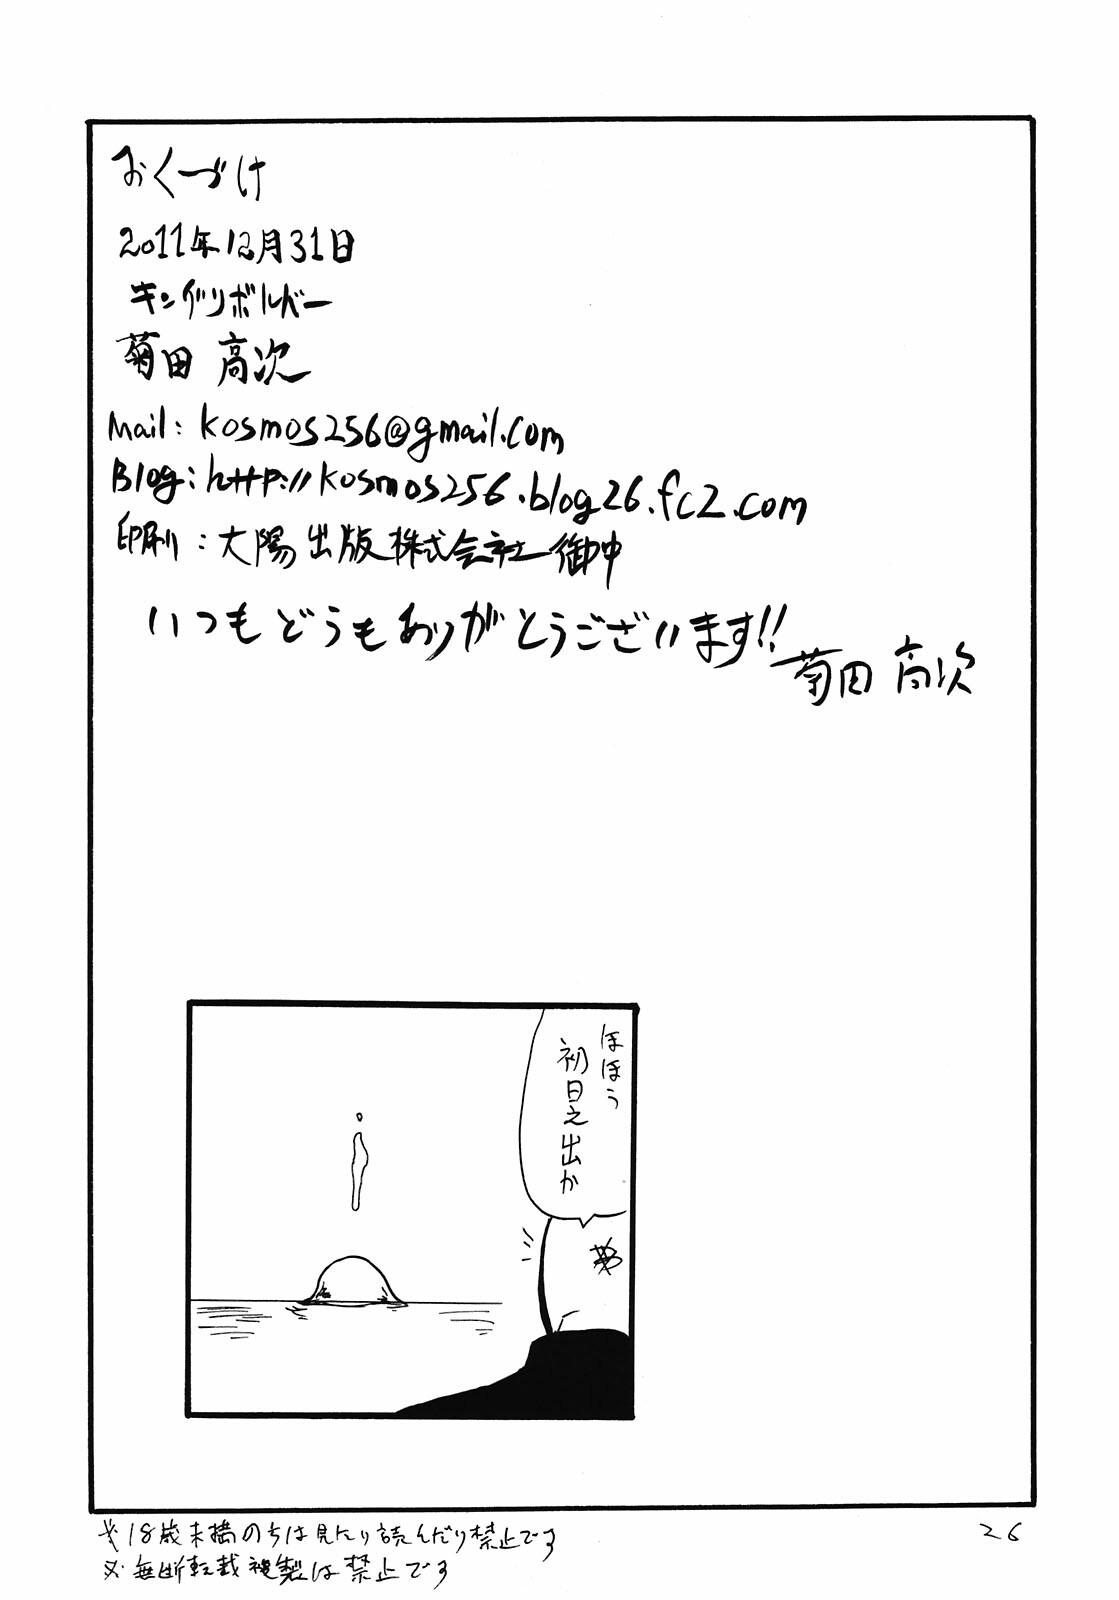 おくづけ
2011年12月31日
キングリボルバー
菊田 高次
Mail: kosmos256@gmail.com
Blog: http://kosmos256.blog26.fc2.com
印刷:大陽出版株式会社 御中
いつもどうもありがとうございます!!
菊田 高次
ほほう
初日之出か
※18歳未満のちは見たり読んだり禁止です
※無断転載複製は禁止です
26